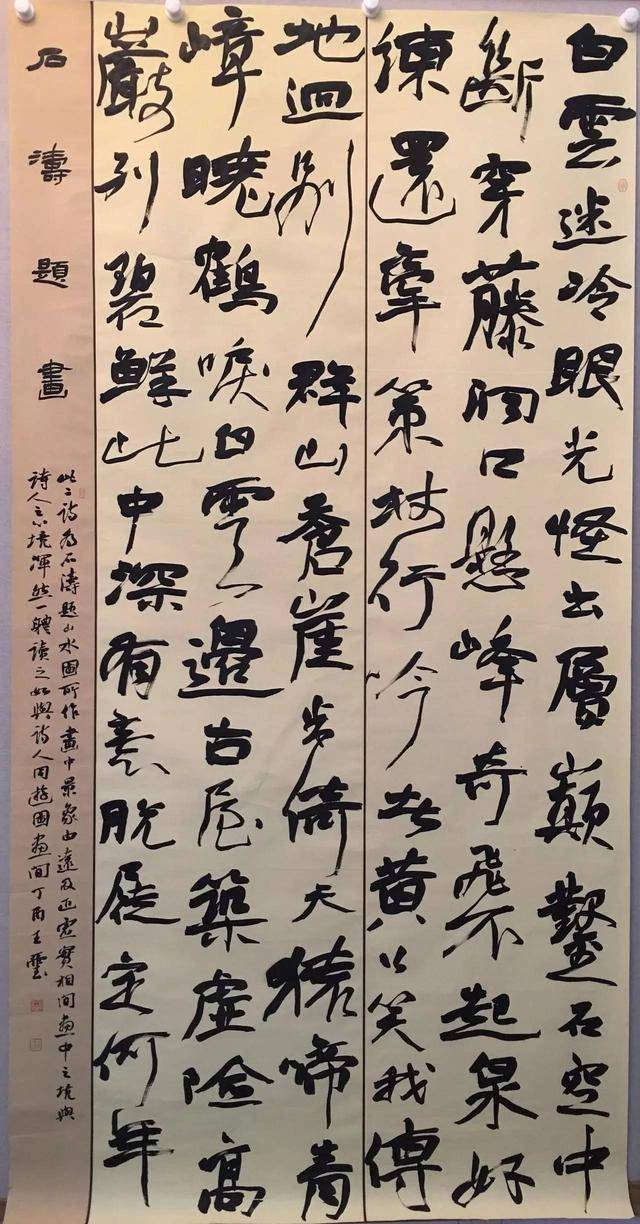 白雲迷冷眼光怪出層巔鑿石空中
斷穿藤洞口懸峰奇飛不起泉好
練還牽策杖行吟去黃公笑我傳
地迥別群山蒼崖步倚天猿啼青
嶂曉鶴唳白雲邊古屋築虛險高
嚴列碧鮮此中深有意脫屣定何年
石濤題畫
此二詩為石濤題山水圖所作畫中景象由遠及近虛實相間畫中之境與
詩人之心境渾然一體讀之如與詩人同遊圖畫間丁酉王